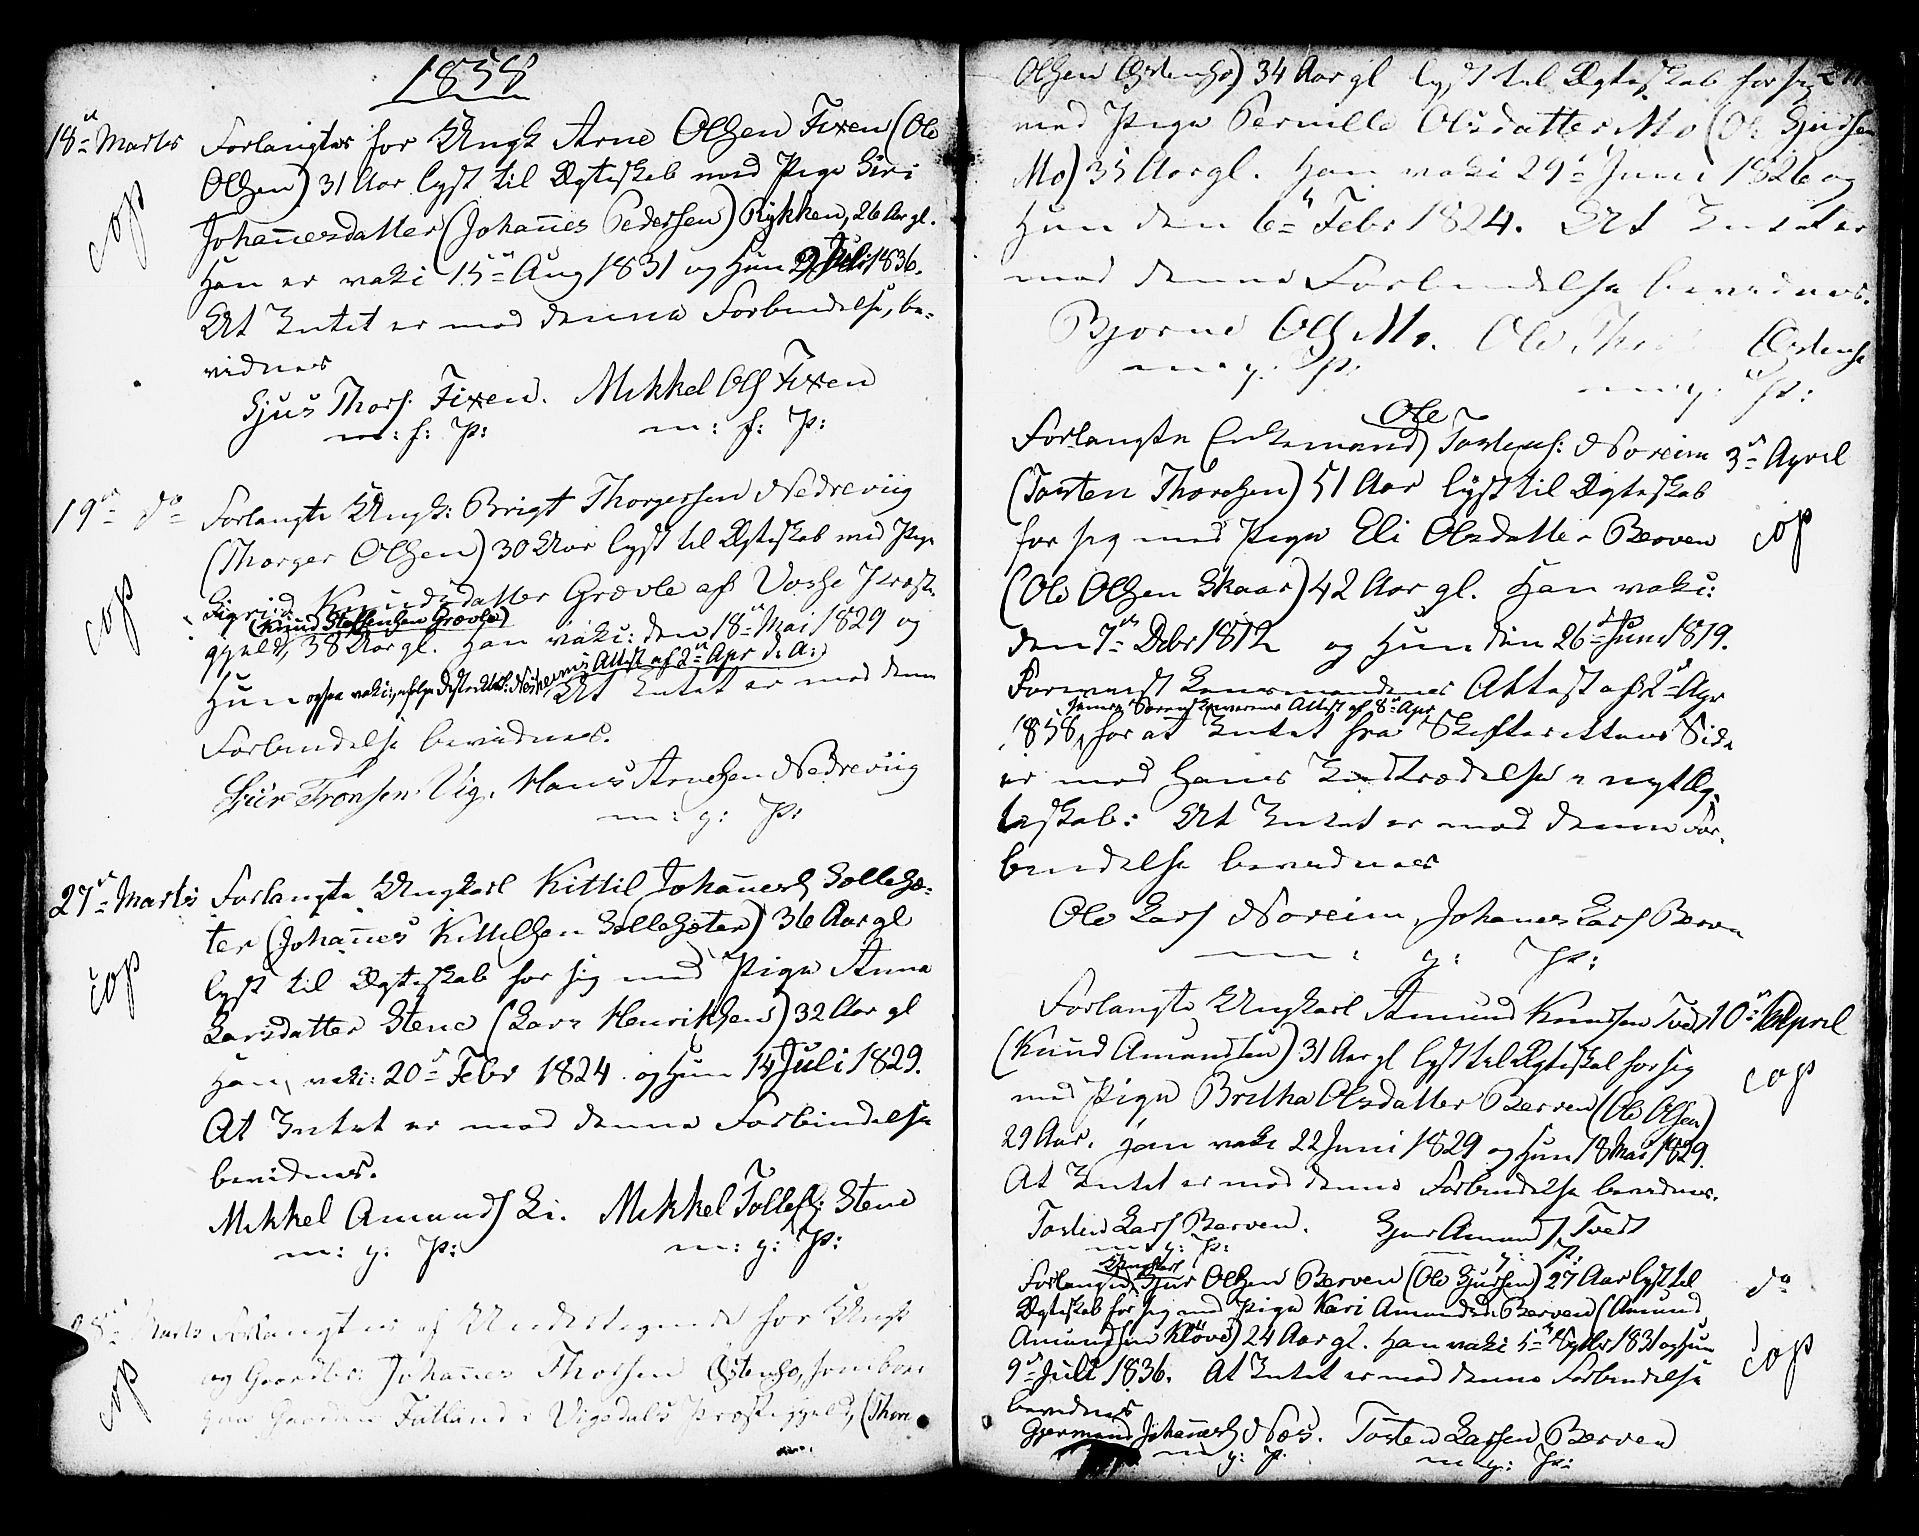 1858
18de Marts Forlangtes for Ungk Arne Olsen Fixen (Ole
Olsen) 31 Aar lyst til Ægteskab med Pige Siri
cop
Johannesdatter (Johannes Pedersen) Rykken, 26 Aar gl.
Han er vakc 15de Aug 1831 og Hun 9 Juli 1836.
At Intet er mod denne Forbindelse, be-
vidnes
Sjur Thors. Fixen. Mikkel Ols Fixen
m: f: P: m: f: P:
19de do Forlangte Ungk: Brigt Thorgersen Nedreviig
(Thorger Olsen) 30 Aar lyst til Ægteskab med Pige
cop
Sigrid Knudsdatter Grævle af Vosse Præste-
(Knud Steffensen Grævle)
gjeld, 38 Aar gl. Han vakc: den 18de Mai 1829 og
Hun ogsaa vakc:, ifølge Attest af 2den Apr d: A:) At Intet er mod denne
Forbindelse bevidnes.
Siur Tronsen Vig. Hans Arnesen Nedreviig
m: g: P:
27de Marts Forlangte Ungkarl Kittil Johannes Sollesæ-
ter (Johannes Kittelsen Sollesæter) 36 Aar gl
cop
lyst til Ægteskab for sig med Pige Anna
Larsdatter Stene (Lars Henriksen) 32 Aar gl
Han vakc: 20de Febr 1824 og Hun 14 Juli 1829.
At Intet er mod denne Forbindelse
bevidnes.
Mikkel Amunds Li. Mikkel Tollefs: Stene
m: g: P: m: g: P:
28de Marts Forlangtes af Undertegnede for Ungk
og Gaardbr: Johannes Thorsen Østensø, som boer
cop
paa Gaarden Fatland i Vigedals Præstegjeld, (Thore
Olsen Østensø) 34 Aar gl lyst til Ægteskab for sig
med Pige Pernille Olsdatter Mo (Ole Sjursen
Mo) 35 Aar gl. Han vakc 29de Juni 1826 og
Hun den 6te Febr 1824. At Intet er
mod denne Forbindelse bevidnes.
Bjorne Ols Mo. Ole Thors Østensø
m: g: P: m: g: P:
Forlangte Enkemand Ole Torstens: Noreim 3de April
(Torsten Thordsen) 51 Aar lyst til Ægteskab
for sig med Pige Eli Olsdatter Berven cop
(Ole Olsen Skaar) 42 Aar gl. Han vakc:
den 7de Debr 1812 og Hun den 26de Juni 1819.
Forevist Lensmandens Attest af 2den Apr
samt Sorenskriverens Attest af 8de Apr
1858, for at Intet fra Skifterettens Side
er mod Hans Indtrædelse i nyt Æg-
teskab: At Intet er mod denne For-
bindelse bevidnes
Ole Lars Noreim, Johanes Lars Berven
m: g: P:
Forlangte Ungkarl Amund Knudsen Tvedt 10de April
(Knud Amundsen) 31 Aar gl lyst til Ægteskab for sig
cop
med Pige Britha Olsdatter Berven (Ole Olsen)
29 Aar. Han vakc 22 Juni 1829 og Hun 18 Mai 1829.
At Intet er mod denne Forbindelse bevidnes.
Torsten Lars Berven. Sjur Amunds Tvedt
m: g: P: g: P:
Forlangte Ungkarl Sjur Olsen Berven (Ole Sjursen) 27 Aar lyst til do
Ægteskab for sig med Pige Kari Amundsd: Berven (Amund
Amundsen Kløve) 24 Aar gl. Han vakc 5te Septbr 1831 og Hun
cop
9de Juli 1836. At Intet er mod denne Forbindelse
bevidnes
Gjermund Johannes Næs. Torsten Larsen Berven
m g: P: m: g: P: